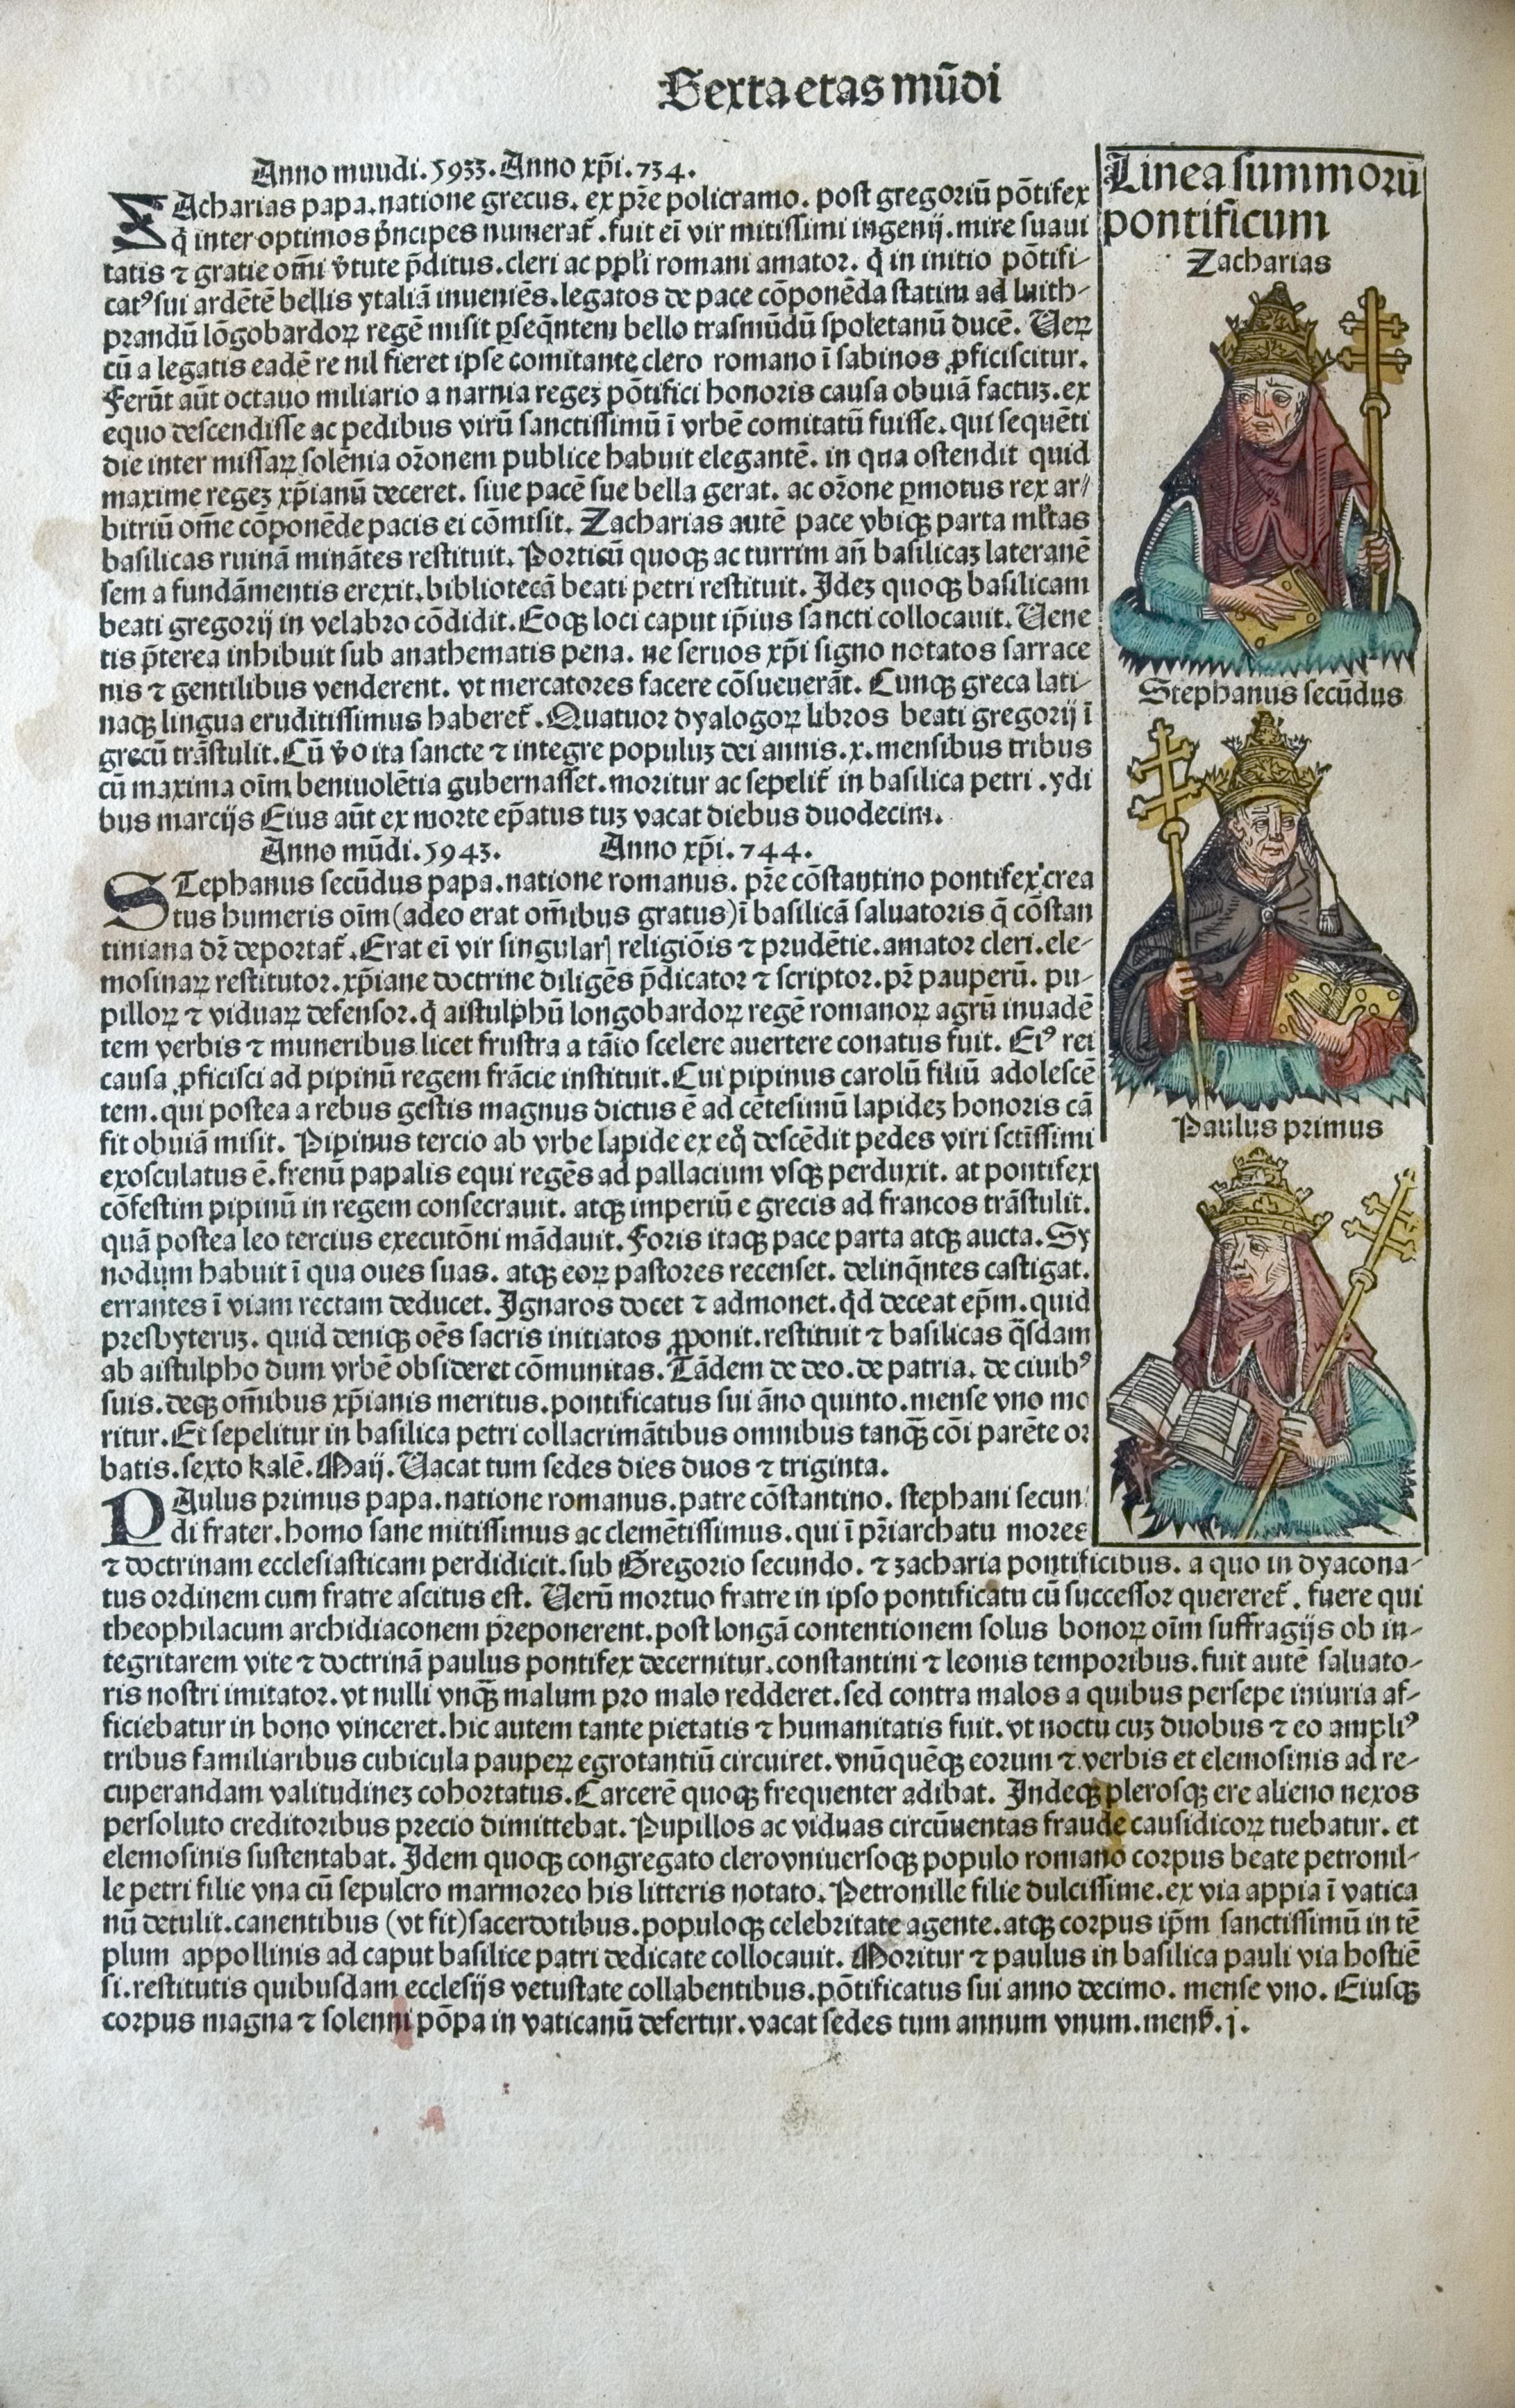 Sexta etas mũdi
Anno muudi. 5933. Anno xp̃i. 734.
ZAcharias papa. natione grecus. ex pr̃e policramo. post gregoriũ põtifex
q̃ inter optimos p̃ncipes numerat᷑. fuit ei᷑ vir mitissimi ingenij. mire suaui
tatis ⁊ gratie om̃i v̓tute p̃ditus. cleri ac pp̃li romani amator. q̃ in initio põtifi-
catꝰ sui ardẽtẽ bellis ytaliã inueniẽs. legatos de pace cõponẽda statim ad luith-
prandũ lõgobardoꝝ regẽ misit ꝑseq̃ntem bello trasmũdũ spoletanũ ducẽ. Ueꝝ
cũ a legatis eadẽ re nil fieret ipse comitante clero romano ĩ sabinos ꝓficiscitur.
Ferũt aũt octauo miliario a narnia regeʒ põtifici honoris causa obuiã factuʒ. ex
equo descendisse ac pedibus virũ sanctissimũ ĩ vrbẽ comitatũ fuisse. qui sequẽti
die inter missaꝝ solẽnia or̃onem publice habuit elegantẽ. in qua ostendit quid
maxime regeʒ xp̃ianũ deceret. siue pacẽ siue bella gerat. ac or̃one ꝑmotus rex ar-
bitriũ om̃e cõponẽde pacis ei cõmisit. Zacharias autẽ pace vbiqꝫ parta ml̃tas
basilicas ruinã minãtes restituit. Porticũ quoqꝫ ac turrim añ basilicaʒ lateranẽ
sem a fundãmentis erexit. bibliotecã beati petri restituit. Ideʒ quoqꝫ basilicam
beati gregorij in velabro cõdidit. Eoqꝫ loci caput ip̃ius sancti collocauit. Uene
tis p̃terea inhibuit sub anathematis pena. ne seruos xp̃i signo notatos sarrace
nis ⁊ gentilibus venderent. vt mercatores facere cõsueuerãt. Cunqꝫ greca lati-
naqꝫ lingua eruditissimus haberet᷑. Quatuor dyalogoꝝ libros beati gregorij ĩ
grecũ trãstulit. Cũ v̓o ita sancte ⁊ integre populuʒ dei annis. x. mensibus tribus
cũ maxima oĩm beniuolẽtia gubernasset. moritur ac sepelit᷑ in basilica petri. ydi
bus marcijs Eius aũt ex morte ep̃atus tuʒ vacat diebus duodecim.
Anno mũdi. 5943. Anno xp̃i. 744.
STephanus secũdus papa. natione romanus. pr̃e cõstantino pontifex crea
tus humeris oĩm (adeo erat om̃ibus gratus) ĩ basilicã saluatoris q̃ cõstan
tiniana dr̃ deportat᷑. Erat ei᷑ vir singularꝭ religiõis ⁊ prudẽtie. amator cleri. ele-
mosinaꝝ restitutor. xp̃iane doctrine diligẽs p̃dicator ⁊ scriptor. pr̃ pauperũ. pu-
pilloꝝ ⁊ viduaꝝ defensor. q̃ aistulphũ longobardoꝝ regẽ romanoꝝ agrũ inuadẽ
tem verbis ⁊ muneribus licet frustra a tãto scelere auertere conatus fuit. Eiꝰ rei
causa ꝓficisci ad pipinũ regem frãcie instituit. Cui pipinus carolũ filiũ adolescẽ
tem. qui postea a rebus gestis magnus dictus ẽ ad cẽtesimũ lapideʒ honoris cã
fit obuiã misit. Pipinus tercio ab vrbe lapide ex eq̊ descẽdit pedes viri sctĩssimi
exosculatus ẽ. frenũ papalis equi regẽs ad pallacium vsqꝫ perduxit. at pontifex
cõfestim pipinũ in regem consecrauit. atqꝫ imperiũ e grecis ad francos trãstulit.
quã postea leo tercius executõni mãdauit. Foris itaqꝫ pace parta atqꝫ aucta. Sy
nodum habuit ĩ qua oues suas. atqꝫ eoꝝ pastores recenset. delinq̃ntes castigat.
errantes ĩ viam rectam deducet. Ignaros docet ⁊ admonet. q̃d deceat ep̃m. quid
presbyteruʒ. quid deniqꝫ oẽs sacris initiatos ꝓponit. restituit ⁊ basilicas q̃sdam
ab aistulpho dum vrbẽ obsideret cõmunitas. Tãdem de deo. de patria. de ciuibꝰ
suis. deqꝫ om̃ibus xp̃ianis meritus. pontificatus sui ãno quinto. mense vno mo
ritur. Et sepelitur in basilica petri collacrimãtibus omnibus tanqꝫ̃ cõi parẽte or
batis. sexto kalẽ. Maij. Uacat tum sedes dies duos ⁊ triginta.
PAulus primus papa. natione romanus. patre cõstantino. stephani secun
di frater. homo sane mitissimus ac clemẽtissimus. qui ĩ pr̃iarchatu mores
⁊ doctrinam ecclesiasticam perdidicit. sub Gregorio secundo. ⁊ zacharia pontificibus. a quo in dyacona-
tus ordinem cum fratre ascitus est. Uerũ mortuo fratre in ipso pontificatu cũ successor quereret᷑. fuere qui
theophilacum archidiaconem preponerent. post longã contentionem solus bonoꝝ oĩm suffragijs ob in-
tegritarem vite ⁊ doctrinã paulus pontifex decernitur. constantini ⁊ leonis temporibus. fuit autẽ saluato-
ris nostri imitator. vt nulli vnqꝫ̃ malum pro malo redderet. sed contra malos a quibus persepe iniuria af-
ficiebatur in bono vinceret. hic autem tante pietatis ⁊ humanitatis fuit. vt noctu cuʒ duobus ⁊ eo ampliꝰ
tribus familiaribus cubicula paupeꝝ egrotantiũ circuiret. vnũquẽqꝫ eorum ⁊ verbis et elemosinis ad re-
cuperandam valitudineʒ cohortatus. Carcerẽ quoqꝫ frequenter adibat. Indeqꝫ plerosqꝫ ere alieno nexos
persoluto creditoribus precio dimittebat. Pupillos ac viduas circũuentas fraude causidicoꝝ tuebatur. et
elemosinis sustentabat. Idem quoqꝫ congregato clero vniuersoqꝫ populo romano corpus beate petronil-
le petri filie vna cũ sepulcro marmoreo his litteris notato. Petronille filie dulcissime. ex via appia ĩ vatica
nũ detulit. canentibus (vt fit) sacerdotibus. populoqꝫ celebritate agente. atqꝫ corpus ip̃m sanctissimũ in tẽ
plum appollinis ad caput basilice patri dedicate collocauit. Moritur ⁊ paulus in basilica pauli via hostiẽ
si. restitutis quibusdam ecclesijs vetustate collabentibus. põtificatus sui anno decimo. mense vno. Eiusqꝫ
corpus magna ⁊ solenni põpa in vaticanũ defertur. vacat sedes tum annum vnum. mens̃. j.
Linea summorũ
pontificum
Zacharias
Stephanus secũdus
Paulus primus